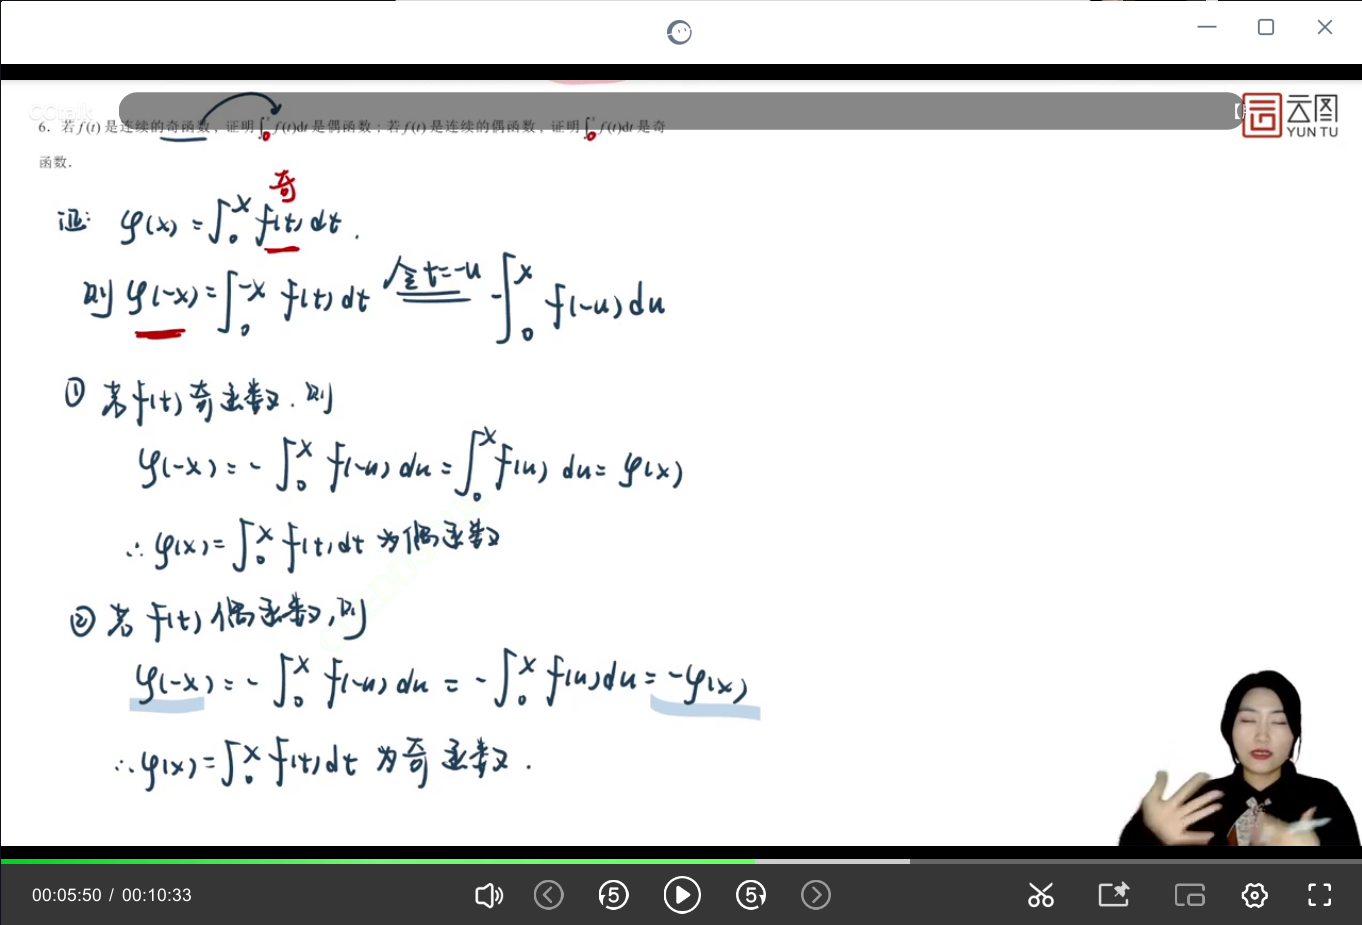 云图
YUN TU
6. 若f(t)是连续的奇函数，证明∫₀ˣf(t)dt是偶函数；若f(t)是连续的偶函数，证明∫₀ˣf(t)dt是奇
函数.
奇
证: φ(x) = ∫₀ˣ f(t) dt .
则 φ(-x) = ∫₀⁻ˣ f(t) dt 令 t=-u -∫₀ˣ f(-u) du
① 若 f(t) 奇函数. 则
φ(-x) = - ∫₀ˣ f(-u) du = ∫₀ˣ f(u) du = φ(x)
∴ φ(x) = ∫₀ˣ f(t) dt 为偶函数
② 若 f(t) 偶函数, 则
φ(-x) = - ∫₀ˣ f(-u) du = - ∫₀ˣ f(u) du = -φ(x)
∴ φ(x) = ∫₀ˣ f(t) dt 为奇函数 .
00:05:50 / 00:10:33
5
5